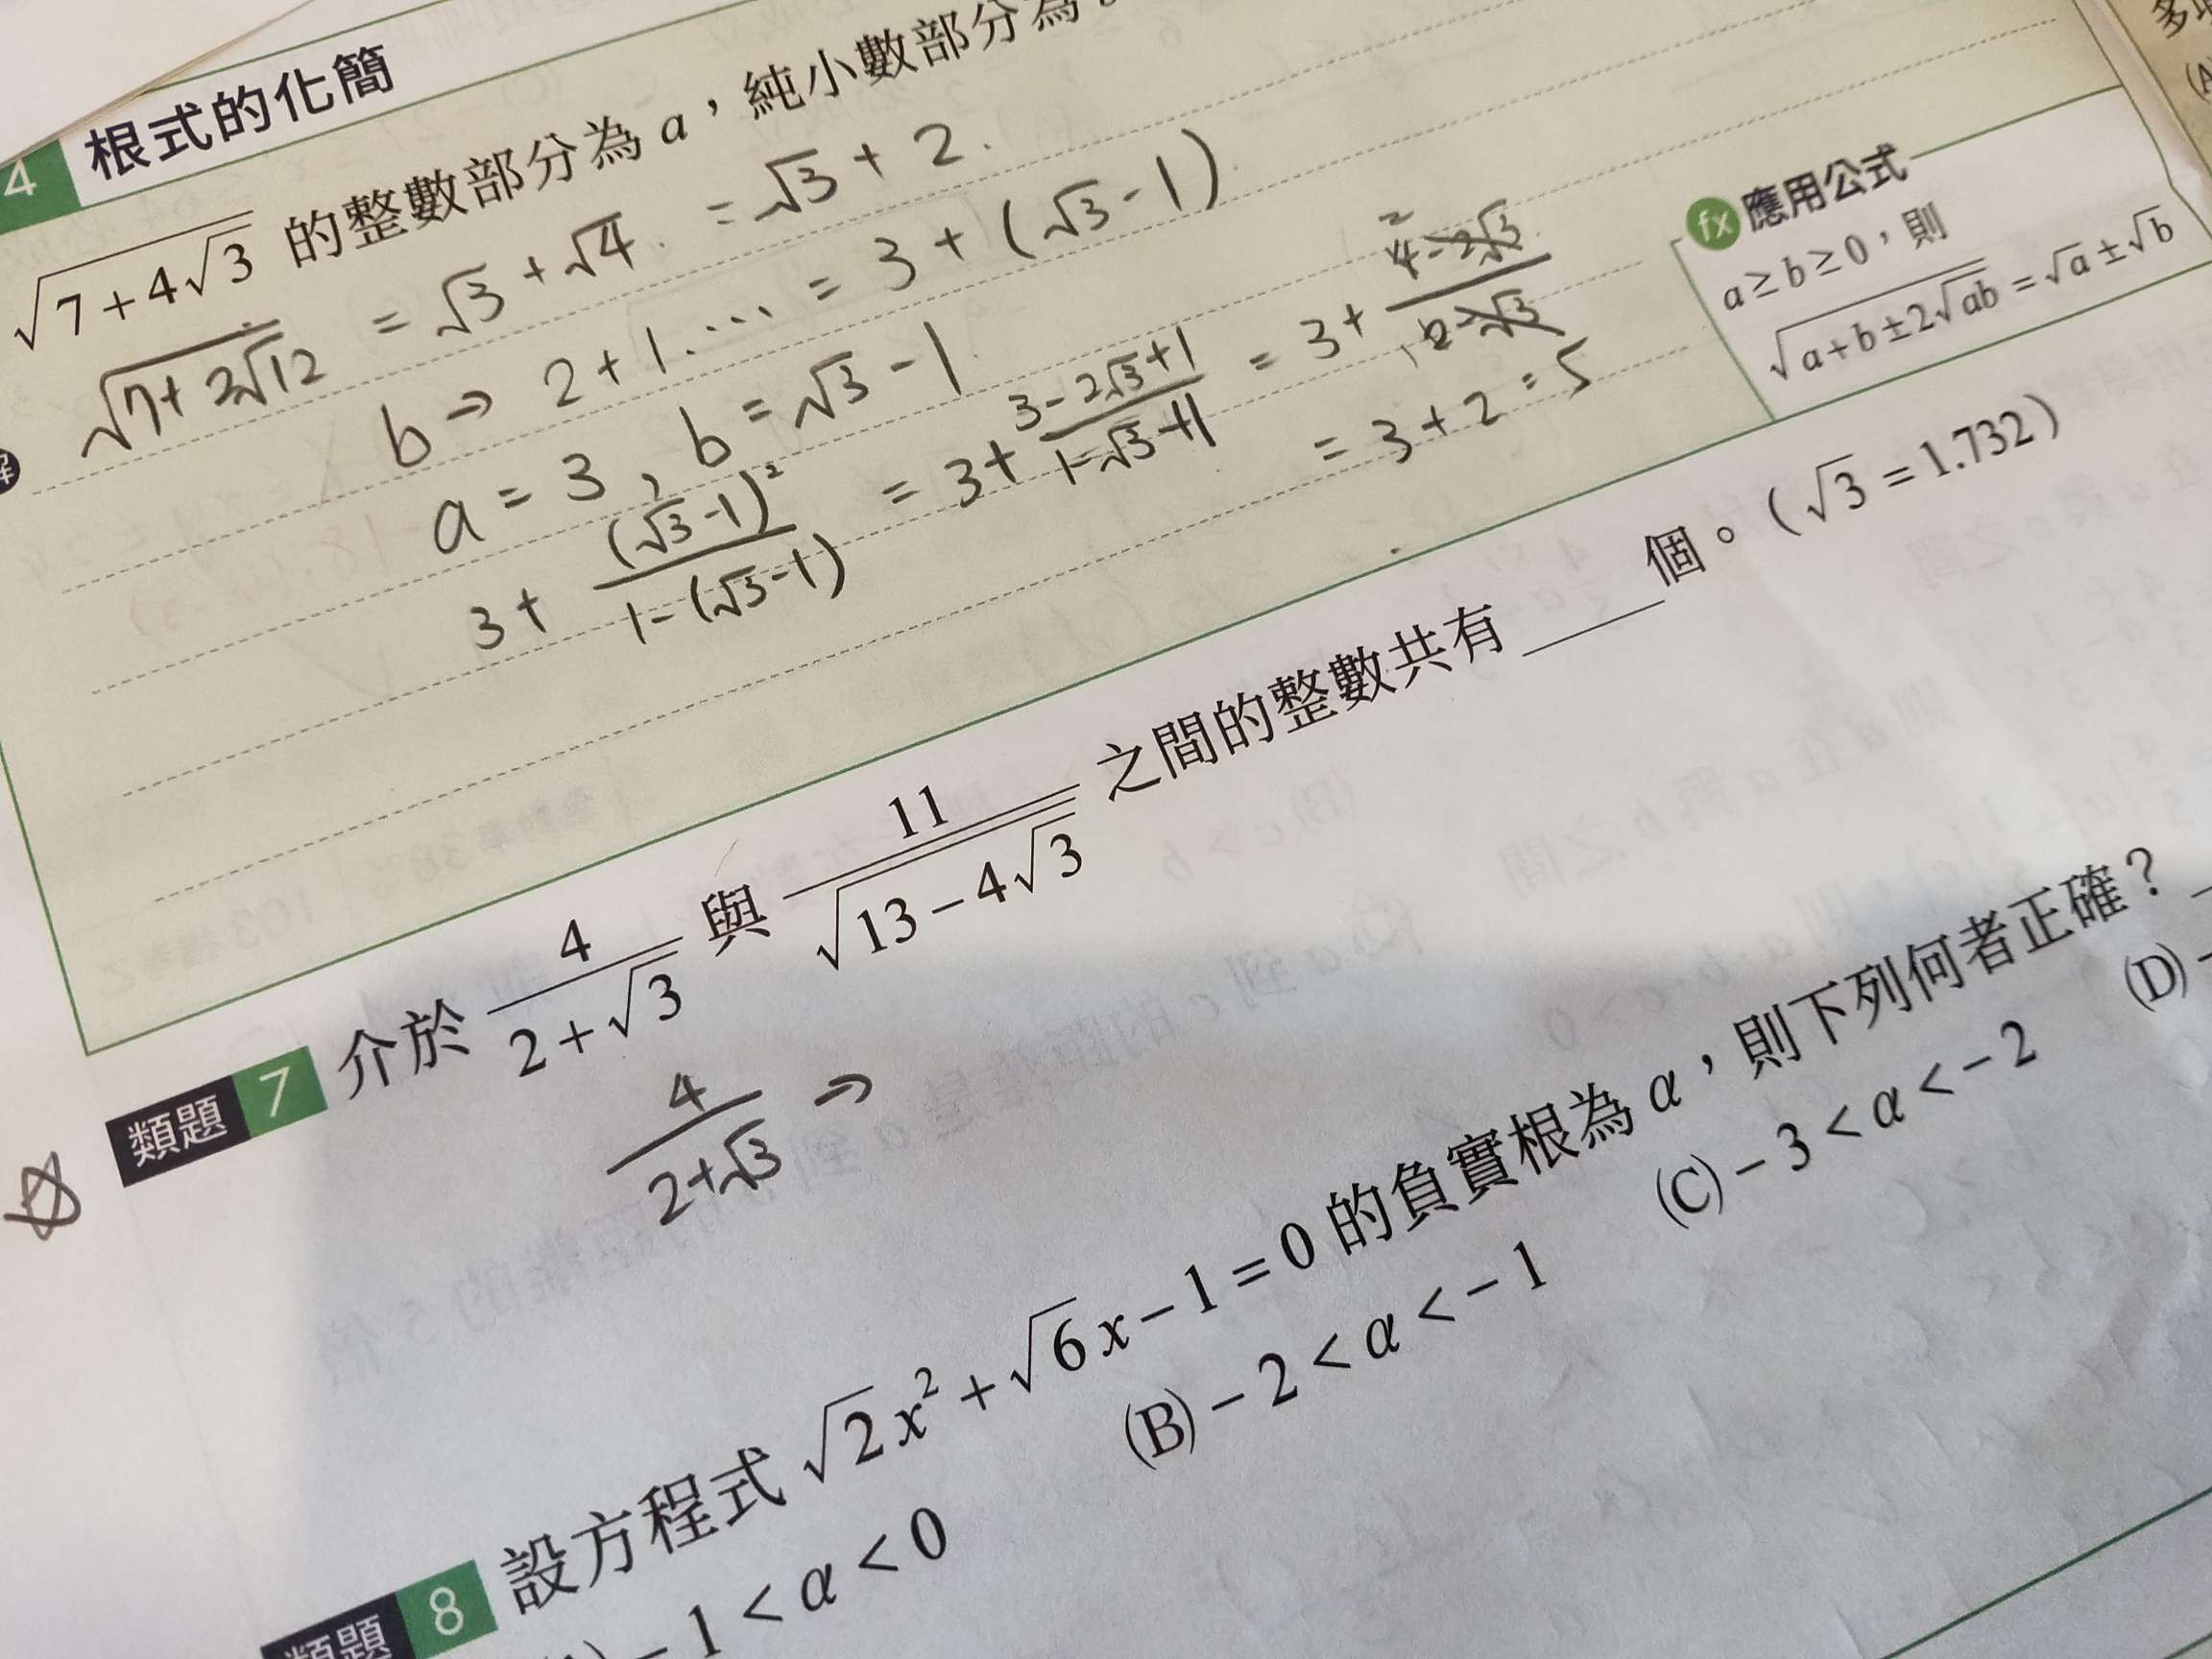 4 根式的化簡
√(7+4√3) 的整數部分為 a，純小數部分為
√(7+2√12) = √3 + √4 = √3 + 2.
b → 2+1.... = 3 + (√3-1)
a = 3, b = √3-1
3 + (√3-1)²/(1-(√3-1)) = 3 + (3-2√3+1)/(1-√3+1) = 3 + (4-2√3)/(2-√3)
= 3+2 = 5
fx 應用公式
a≥b≥0，則
√(a+b±2√ab) = √a±√b
類題 7 介於 4/(2+√3) 與 11/√(13-4√3) 之間的整數共有____個。(√3=1.732)
4/(2+√3) →
類題 8 設方程式 √2x²+√6x-1=0 的負實根為 α，則下列何者正確？
-1<α<0 (B)-2<α<-1 (C)-3<α<-2 (D)-